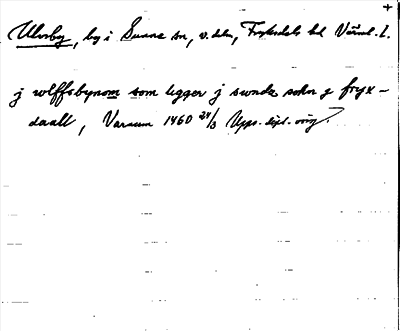 +
Ulvsby, by i Sunne sn, v. delen, Fryksdals hd Värml. l.
j wlffsbynom som legger j swnda sokn j fryx-
daall, Varnum 1460 24/3 Upps. dipl. orig.